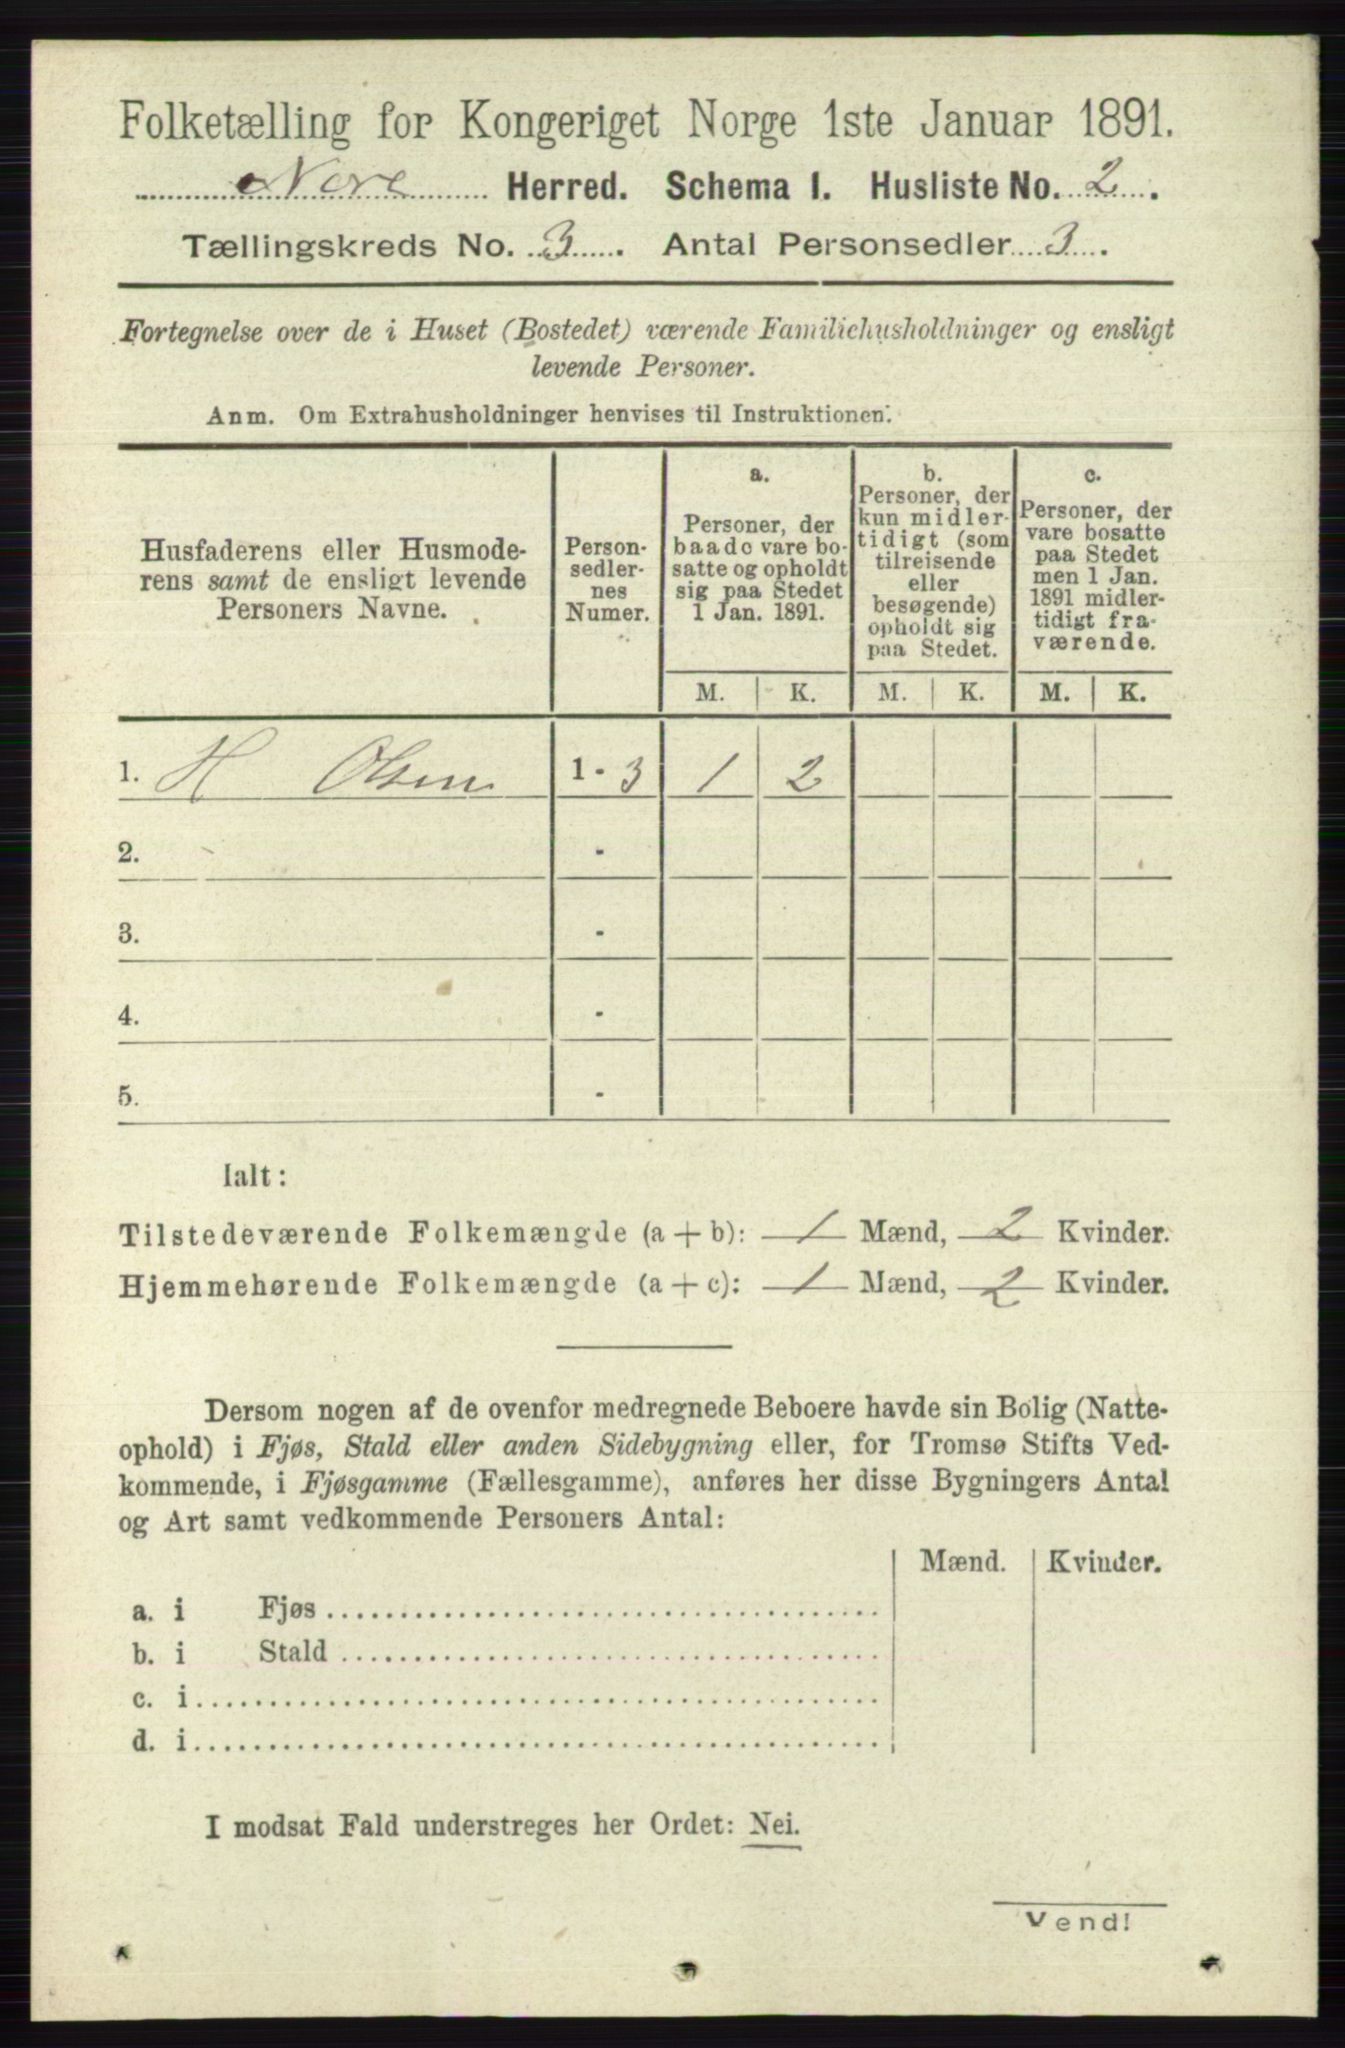 Folketælling for Kongeriget Norge 1ste Januar 1891.
Nore Herred. Schema I. Husliste No. 2.
Tællingskreds No. 3. Antal Personsedler 3.
Fortegnelse over de i Huset (Bostedet) værende Familiehusholdninger og ensligt
levende Personer.
Anm. Om Extrahusholdninger henvises til Instruktionen.
Husfaderens eller Husmode-
rens samt de ensligt levende
Personers Navne.
Person-
sedler-
nes
Numer.
a.
Personer, der
baade vare bo-
satte og opholdt
sig paa Stedet
1 Jan. 1891.
b.
Personer, der
kun midler-
tidigt (som
tilreisende
eller
besøgende)
opholdt sig
paa Stedet.
c.
Personer, der
vare bosatte
paa Stedet
men 1 Jan.
1891 midler-
tidigt fra-
værende.
M. K. M. K. M. K.
1. H Olsen 1 - 3 1 2
2. -
3. -
4. -
5. -
Ialt:
Tilstedeværende Folkemængde (a + b): 1 Mænd, 2 Kvinder.
Hjemmehørende Folkemængde (a + c): 1 Mænd, 2 Kvinder.
Dersom nogen af de ovenfor medregnede Beboere havde sin Bolig (Natte-
ophold) i Fjøs, Stald eller anden Sidebygning eller, for Tromsø Stifts Ved-
kommende, i Fjøsgamme (Fællesgamme), anføres her disse Bygningers Antal
og Art samt vedkommende Personers Antal:
Mænd. Kvinder.
a. i Fjøs
b. i Stald
c. i
d. i
I modsat Fald understreges her Ordet: Nei.
Vend!